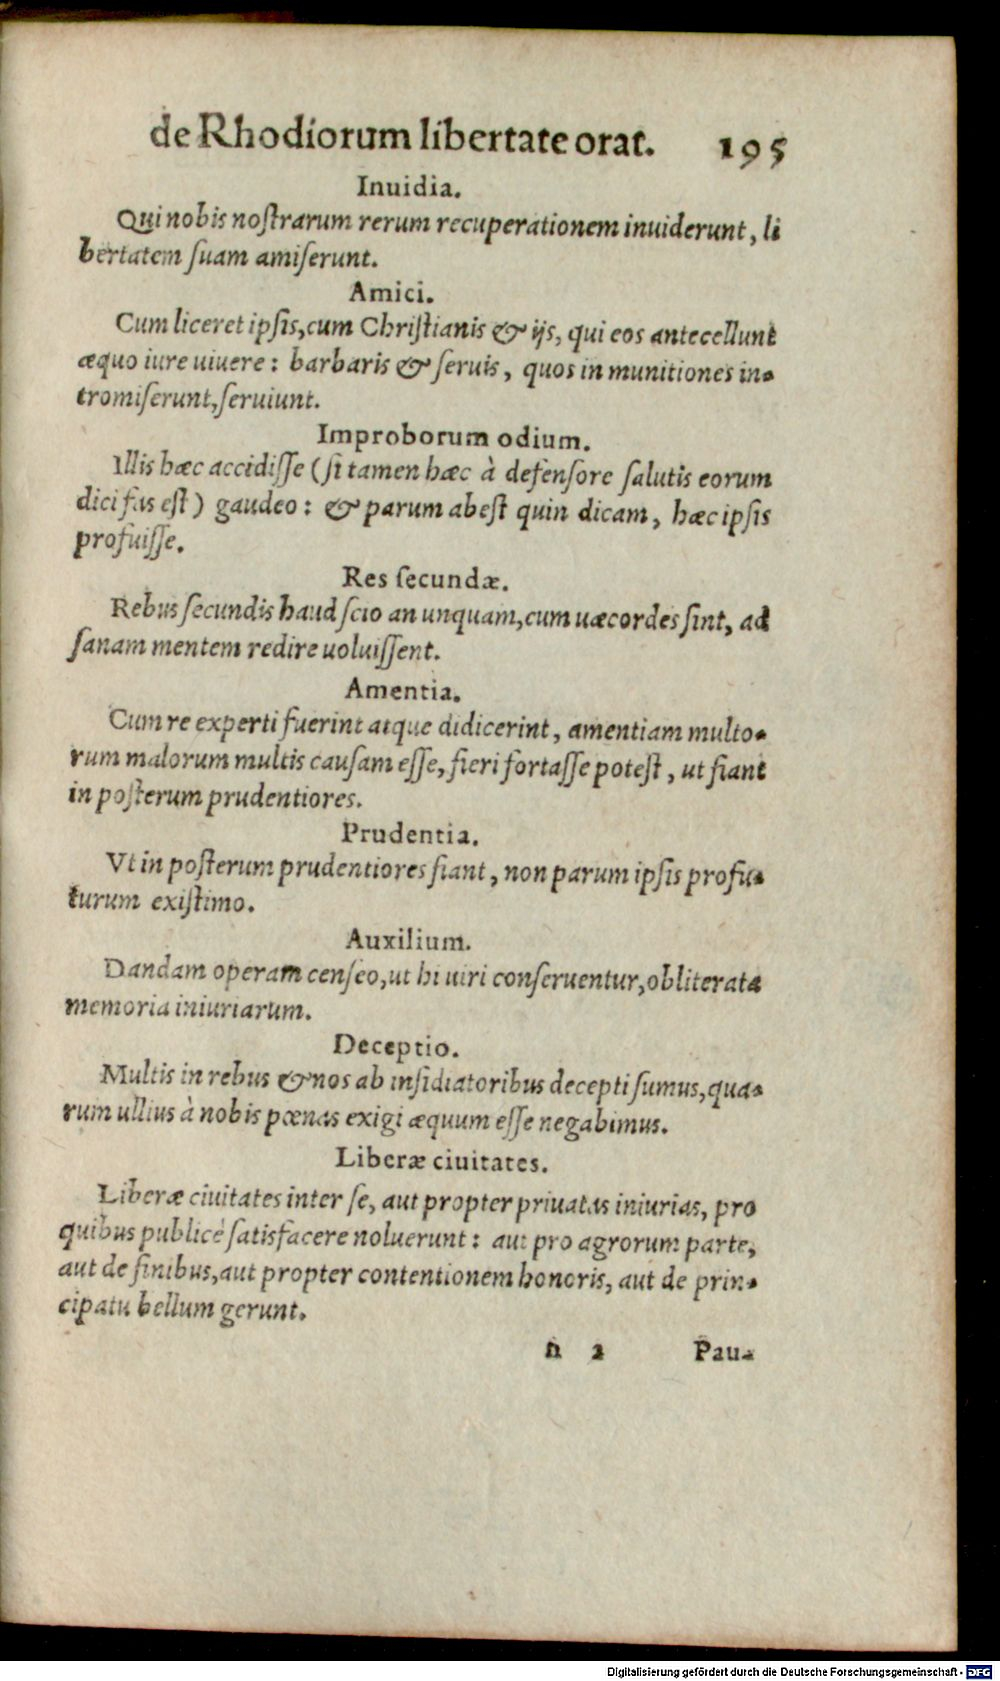 de Rhodiorum libertate orat. 195
Inuidia.
Qui nobis noſtrarum rerum recuperationem inuiderunt, li
bertatem ſuam amiſerunt.
Amici.
Cum liceret ipſis, cum Chriſtianis & ijs, qui eos antecellunt
æquo iure uiuere: barbaris & ſeruis, quos in munitiones in-
tromiſerunt, ſeruiunt.
Improborum odium.
Illis hæc accidiſſe (ſi tamen hæc à defenſore ſalutis eorum
dici fas eſt) gaudeo: & parum abeſt quin dicam, hæc ipſis
profuiſſe.
Res ſecundæ.
Rebus ſecundis haud ſcio an unquam, cum uæcordes ſint, ad
ſanam mentem redire uoluiſſent.
Amentia.
Cum re experti fuerint atque didicerint, amentiam multo-
rum malorum multis cauſam eſſe, fieri fortaſſe poteſt, ut fiant
in poſterum prudentiores.
Prudentia.
Vt in poſterum prudentiores fiant, non parum ipſis profu-
turum exiſtimo.
Auxilium.
Dandam operam cenſeo, ut hi uiri conſeruentur, obliterata
memoria iniuriarum.
Deceptio.
Multis in rebus & nos ab inſidiatoribus decepti ſumus, qua-
rum ullius à nobis pœnas exigi æquum eſſe negabimus.
Liberæ ciuitates.
Liberæ ciuitates inter ſe, aut propter priuatas iniurias, pro
quibus publicè ſatisfacere noluerunt: aut pro agrorum parte,
aut de finibus, aut propter contentionem honoris, aut de prin-
cipatu bellum gerunt.
n 2 Pau-
Digitalisierung gefördert durch die Deutsche Forschungsgemeinschaft - DFG